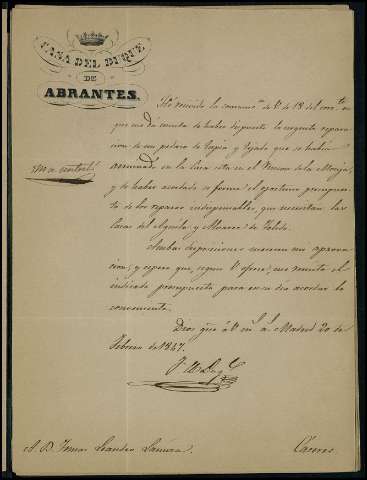 CASA DEL DUQUE
DE
ABRANTES.
He recibido la comunic.on de V. de 18 del corr.te en
que me dá cuenta de haber dispuesto la urgente repara
cion de un pedazo de tapia y tejado que se habia
arruinado en la casa sita en el
y de haber acordado se forme el oportuno presupues
to de los reparos indispensables, que necesitan las
casas del Aguila y de Toledo.
Ambas disposiciones merecen mi aproba
cion, y espero que, segun V. ofrece, me remita el
indicado presupuesto para en su dia acordar lo
conveniente.
Dios gue á V. m.s a.s Madrid 20 de
Febrero de 1847.
El Duq.e
A D. Tomas Leandro
Cáceres.